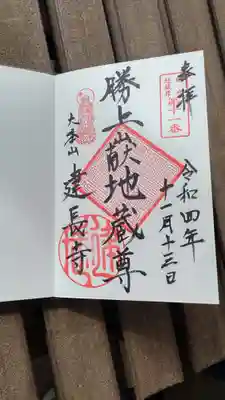 奉拝
令和四年
十月十三日
勝上嶽地蔵尊
大本山
建長寺